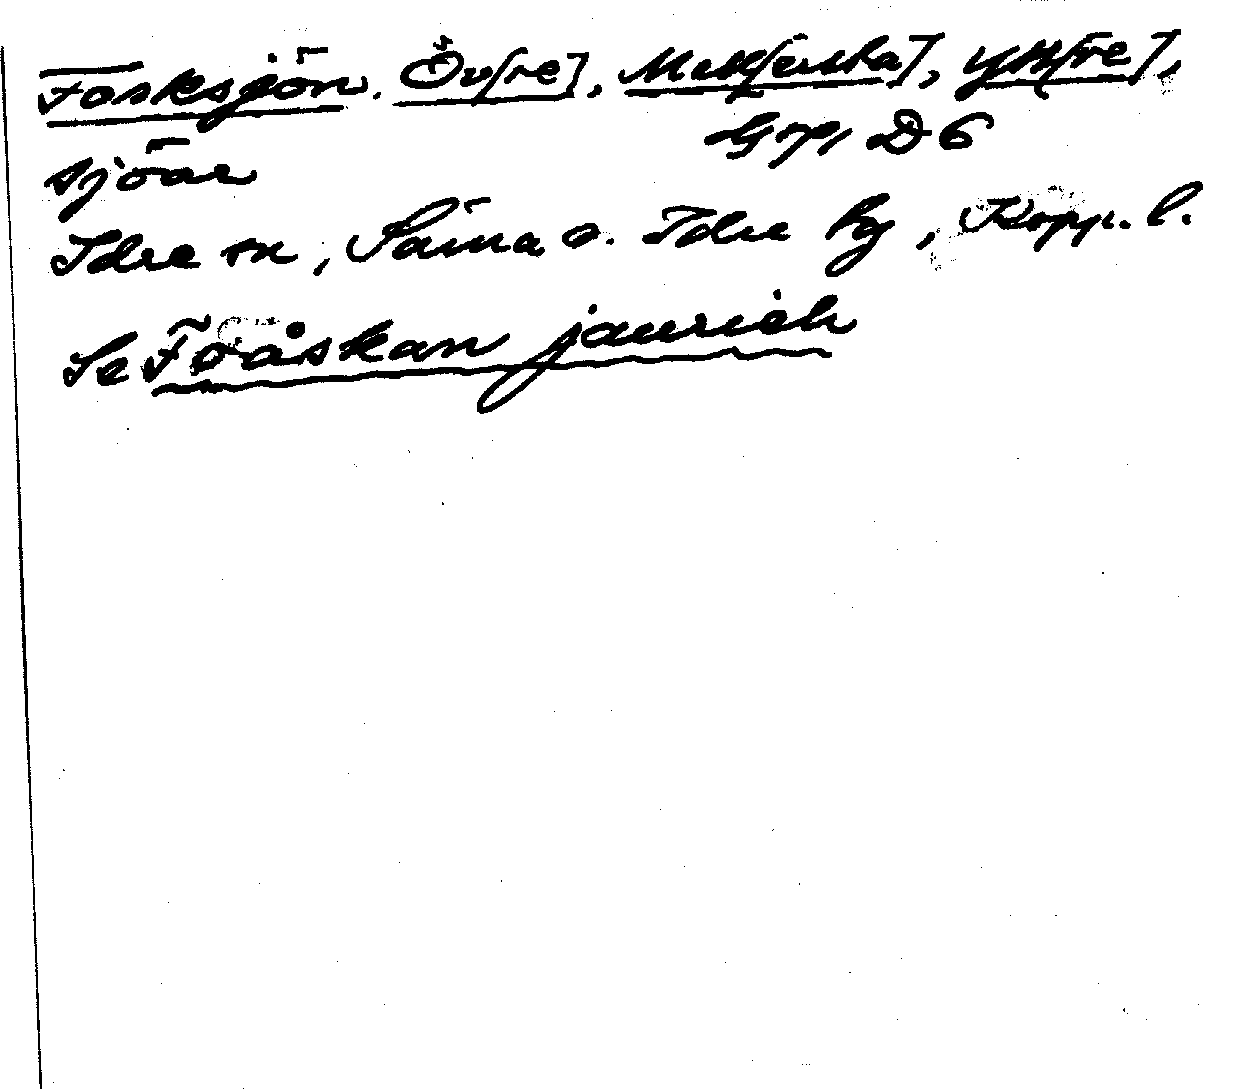 Fosksjön. Öv[re], Mell[ersta], Ytt[re],
sjöar Gpl D6
Idre sn, Särna o. Idre by, Kopp. l.
Se Foåskan jaurieh